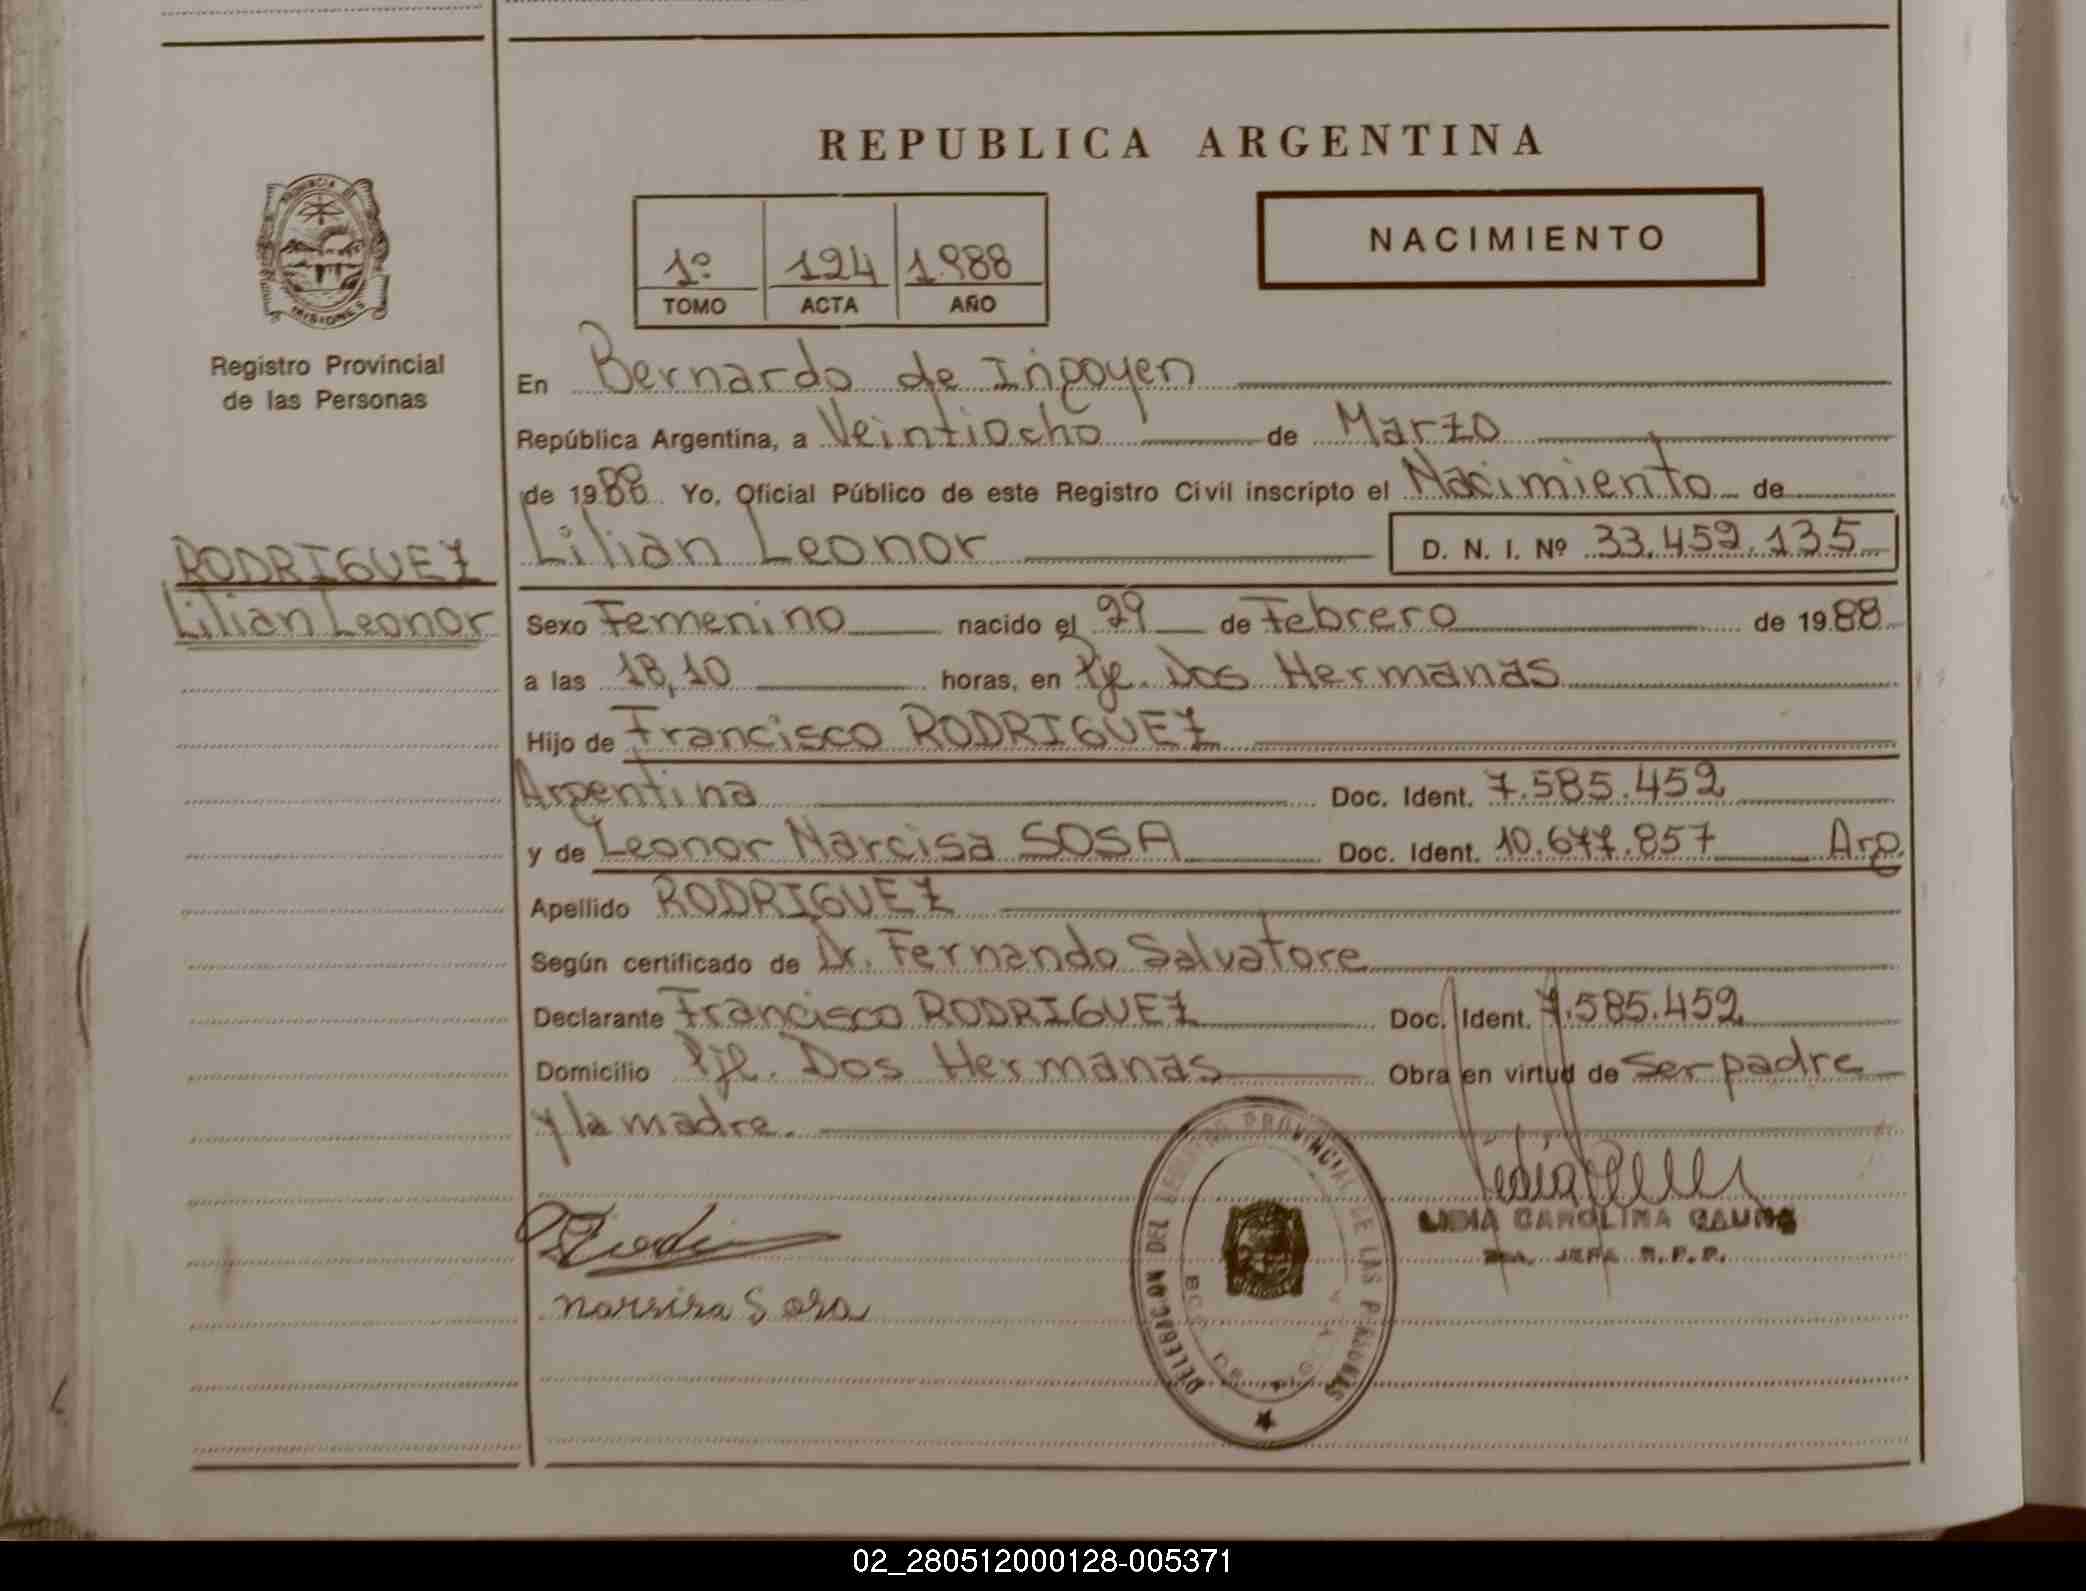 REPUBLICA ARGENTINA
PROVINCIA DE
MISIONES
Registro Provincial
de las Personas
1º 124 1.988
TOMO ACTA AÑO
NACIMIENTO
En Bernardo de Irigoyen
República Argentina, a Veintiocho de Marzo
de 1988 Yo, Oficial Público de este Registro Civil inscripto el Nacimiento de
Lilian Leonor D. N. I. Nº 33.459.135
RODRIGUEZ
Lilian Leonor
Sexo Femenino nacido el 29 de Febrero de 1988
a las 18,10 horas, en Pje. Dos Hermanas
Hijo de Francisco RODRIGUEZ
Argentina Doc. Ident. 7.585.452
y de Leonor Narcisa SOSA Doc. Ident. 10.677.857 Arg.
Apellido RODRIGUEZ
Según certificado de Dr. Fernando Salvatore
Declarante Francisco RODRIGUEZ Doc. Ident. 7.585.452
Domicilio Pje. Dos Hermanas Obra en virtud de ser padre
y la madre.
LIDIA CAROLINA
JEFA R.P.P.
DELEGACION DEL REGISTRO PROVINCIAL DE LAS PERSONAS
narsisa Sosa
02_280512000128-005371